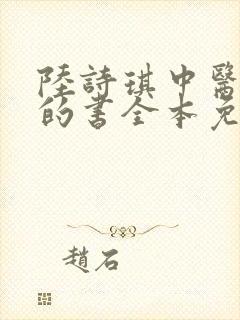 陸詩琪中醫
的書全本免
趙石